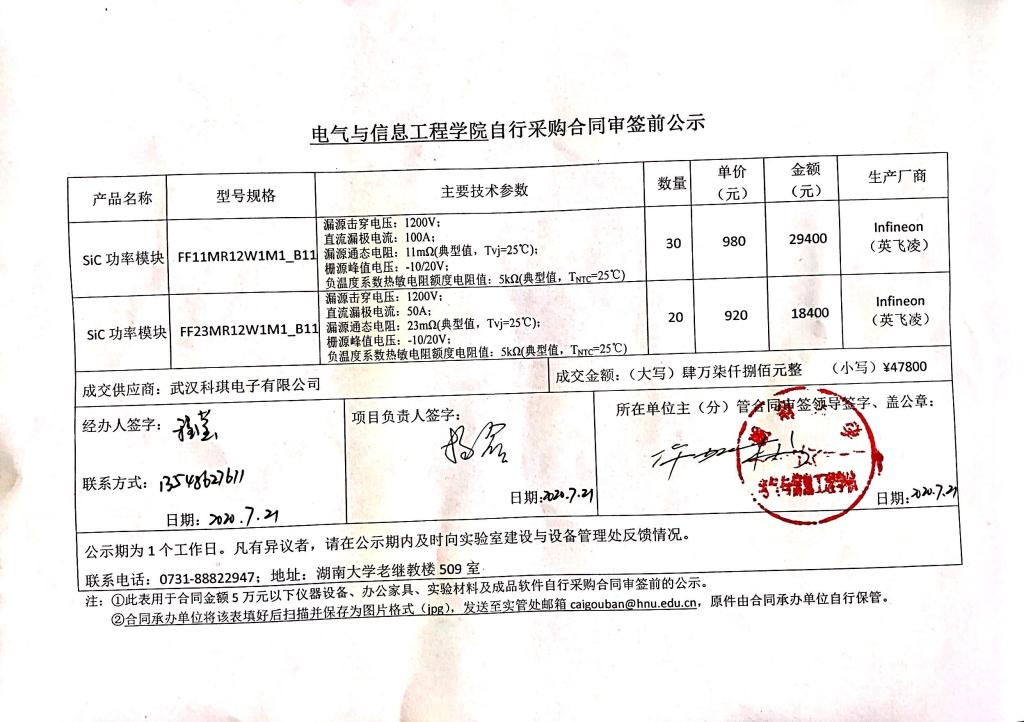 电气与信息工程学院自行采购合同审签前公示
产品名称 型号规格 主要技术参数 数量 单价（元） 金额（元） 生产厂商
SiC 功率模块 FF11MR12W1M1_B11
漏源击穿电压：1200V；
直流漏极电流：100A；
漏源通态电阻：11mΩ(典型值，Tvj=25℃)；
栅源峰值电压：-10/20V；
负温度系数热敏电阻额度电阻值：5kΩ(典型值，TNTC=25℃)
30 980 29400 Infineon（英飞凌）
SiC 功率模块 FF23MR12W1M1_B11
漏源击穿电压：1200V；
直流漏极电流：50A；
漏源通态电阻：23mΩ(典型值，Tvj=25℃)；
栅源峰值电压：-10/20V；
负温度系数热敏电阻额度电阻值：5kΩ(典型值，TNTC=25℃)
20 920 18400 Infineon（英飞凌）
成交供应商：武汉科琪电子有限公司 成交金额：（大写）肆万柒仟捌佰元整 （小写）¥47800
经办人签字：
联系方式：13548627611
日期：2020.7.21
项目负责人签字：
日期：2020.7.21
所在单位主（分）管合同审签领导签字、盖公章：
电气与信息工程学院
日期：2020.7.21
公示期为 1 个工作日。凡有异议者，请在公示期内及时向实验室建设与设备管理处反馈情况。
联系电话：0731-88822947；地址：湖南大学老继教楼 509 室
注：①此表用于合同金额 5 万元以下仪器设备、办公家具、实验材料及成品软件自行采购合同审签前的公示。
②合同承办单位将该表填好后扫描并保存为图片格式（jpg），发送至实管处邮箱 caigouban@hnu.edu.cn，原件由合同承办单位自行保管。